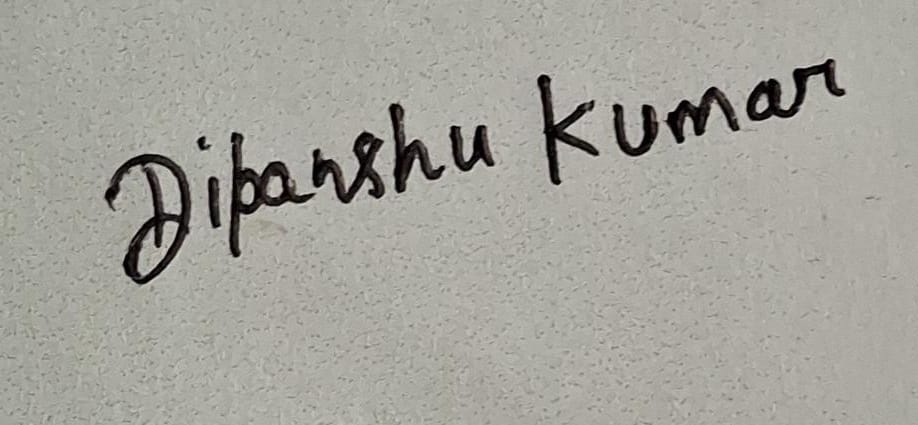 Dipanshu Kumar